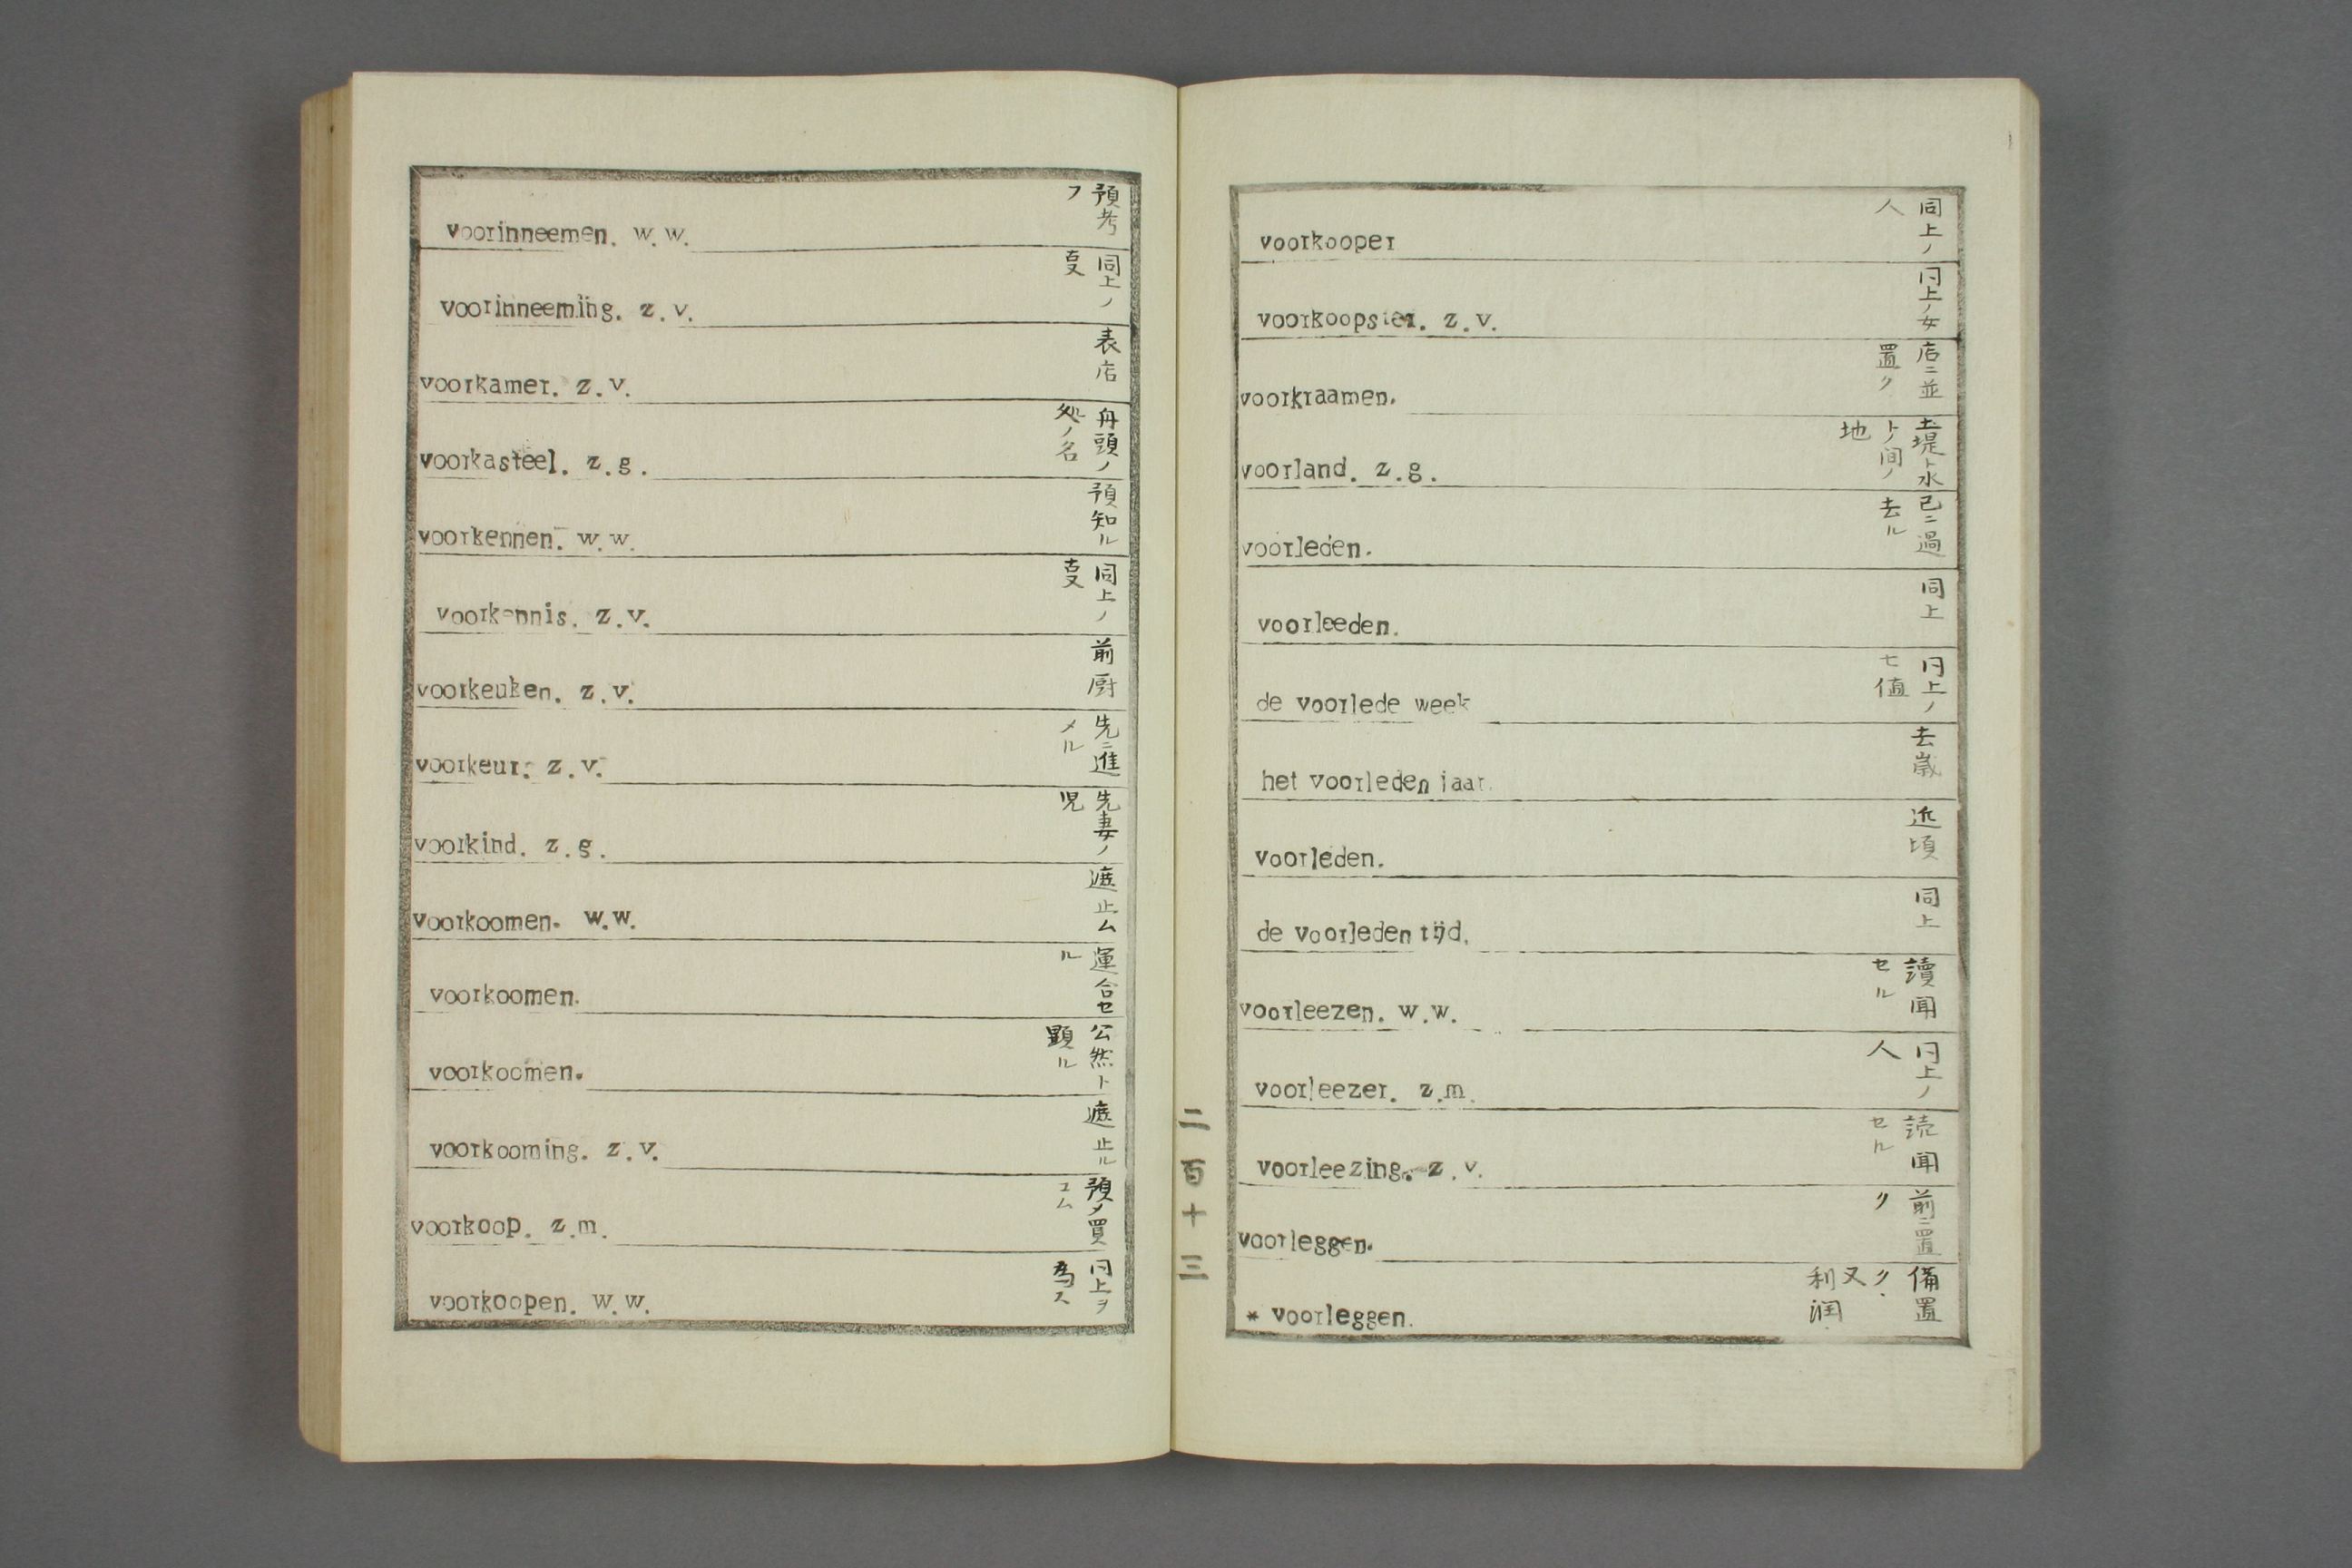 voorinneemen. w.w. 預考フ
voorinneeming. z.v. 同上ノ叓
voorkamer. z.v. 表店
voorkasteel. z.g. 舟頭ノ処ノ名
voorkennen. w.w. 預知ル
voorkennis. z.v. 同上ノ叓
voorkeuken. z.v. 前厨
voorkeur. z.v. 先ニ進メル
voorkind. z.g. 先妻ノ児
voorkoomen. w.w. 遮止ム
voorkoomen. 運合セル
voorkoomen. 公然ト顕ル
voorkooming. z.v. 遮止ル
voorkoop. z.m. 預メ買コム
voorkoopen. w.w. 仝上ヲ為ス
二百十三
voorkooper 同上ノ人
voorkoopster. z.v. 仝上ノ女
voorkraamen. 店ニ並置ク
voorland. z.g. 土堤ト水トノ間ノ地
voorleden. 已ニ過去ル
voorleeden. 同上
de voorlede week 仝上ノ七値
het voorleden jaar. 去歳
voorleden. 近頃
de voorleden tijd. 同上
voorleezen. w.w. 讀聞セル
voorleezer. z.m. 仝上ノ人
voorleezing. z.v. 読聞セル
voorleggen. 前ニ置ク
* voorleggen. 備置ク. 又利潤